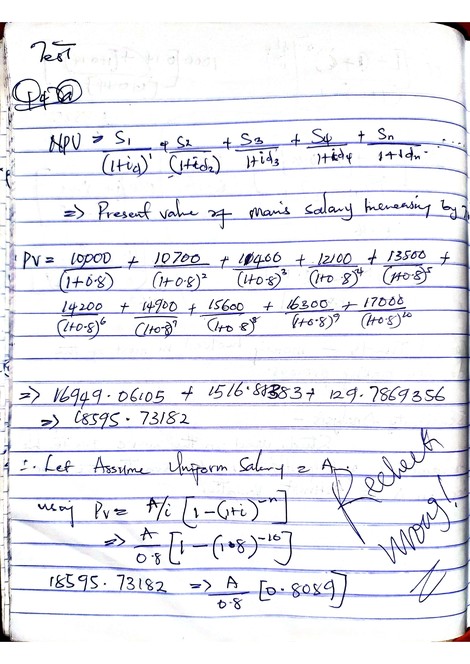 Test
Q4 a
NPV = S1/(1+id)^1 + S2/(1+id2) + S3/1+id3 + S4/1+id4 + Sn/1+idn ...
=> Present value of man's salary increasing by
PV = 10000/(1+0.8) + 10700/(1+0.8)^2 + 11400/(1+0.8)^3 + 12100/(1+0.8)^4 + 13500/(1+0.8)^5 +
14200/(1+0.8)^6 + 14900/(1+0.8)^7 + 15600/(1+0.8)^8 + 16300/(1+0.8)^9 + 17000/(1+0.8)^10
=> 16949.06105 + 1516.88383 + 129.7869356
=> 18595.73182
∴ Let Assume Uniform Salary = A
using PV = A/i [1-(1+i)^-n]
=> A/0.8 [1-(1.08)^-10]
18595.73182 => A/0.8 [0.8089]
Recheck
wrong!